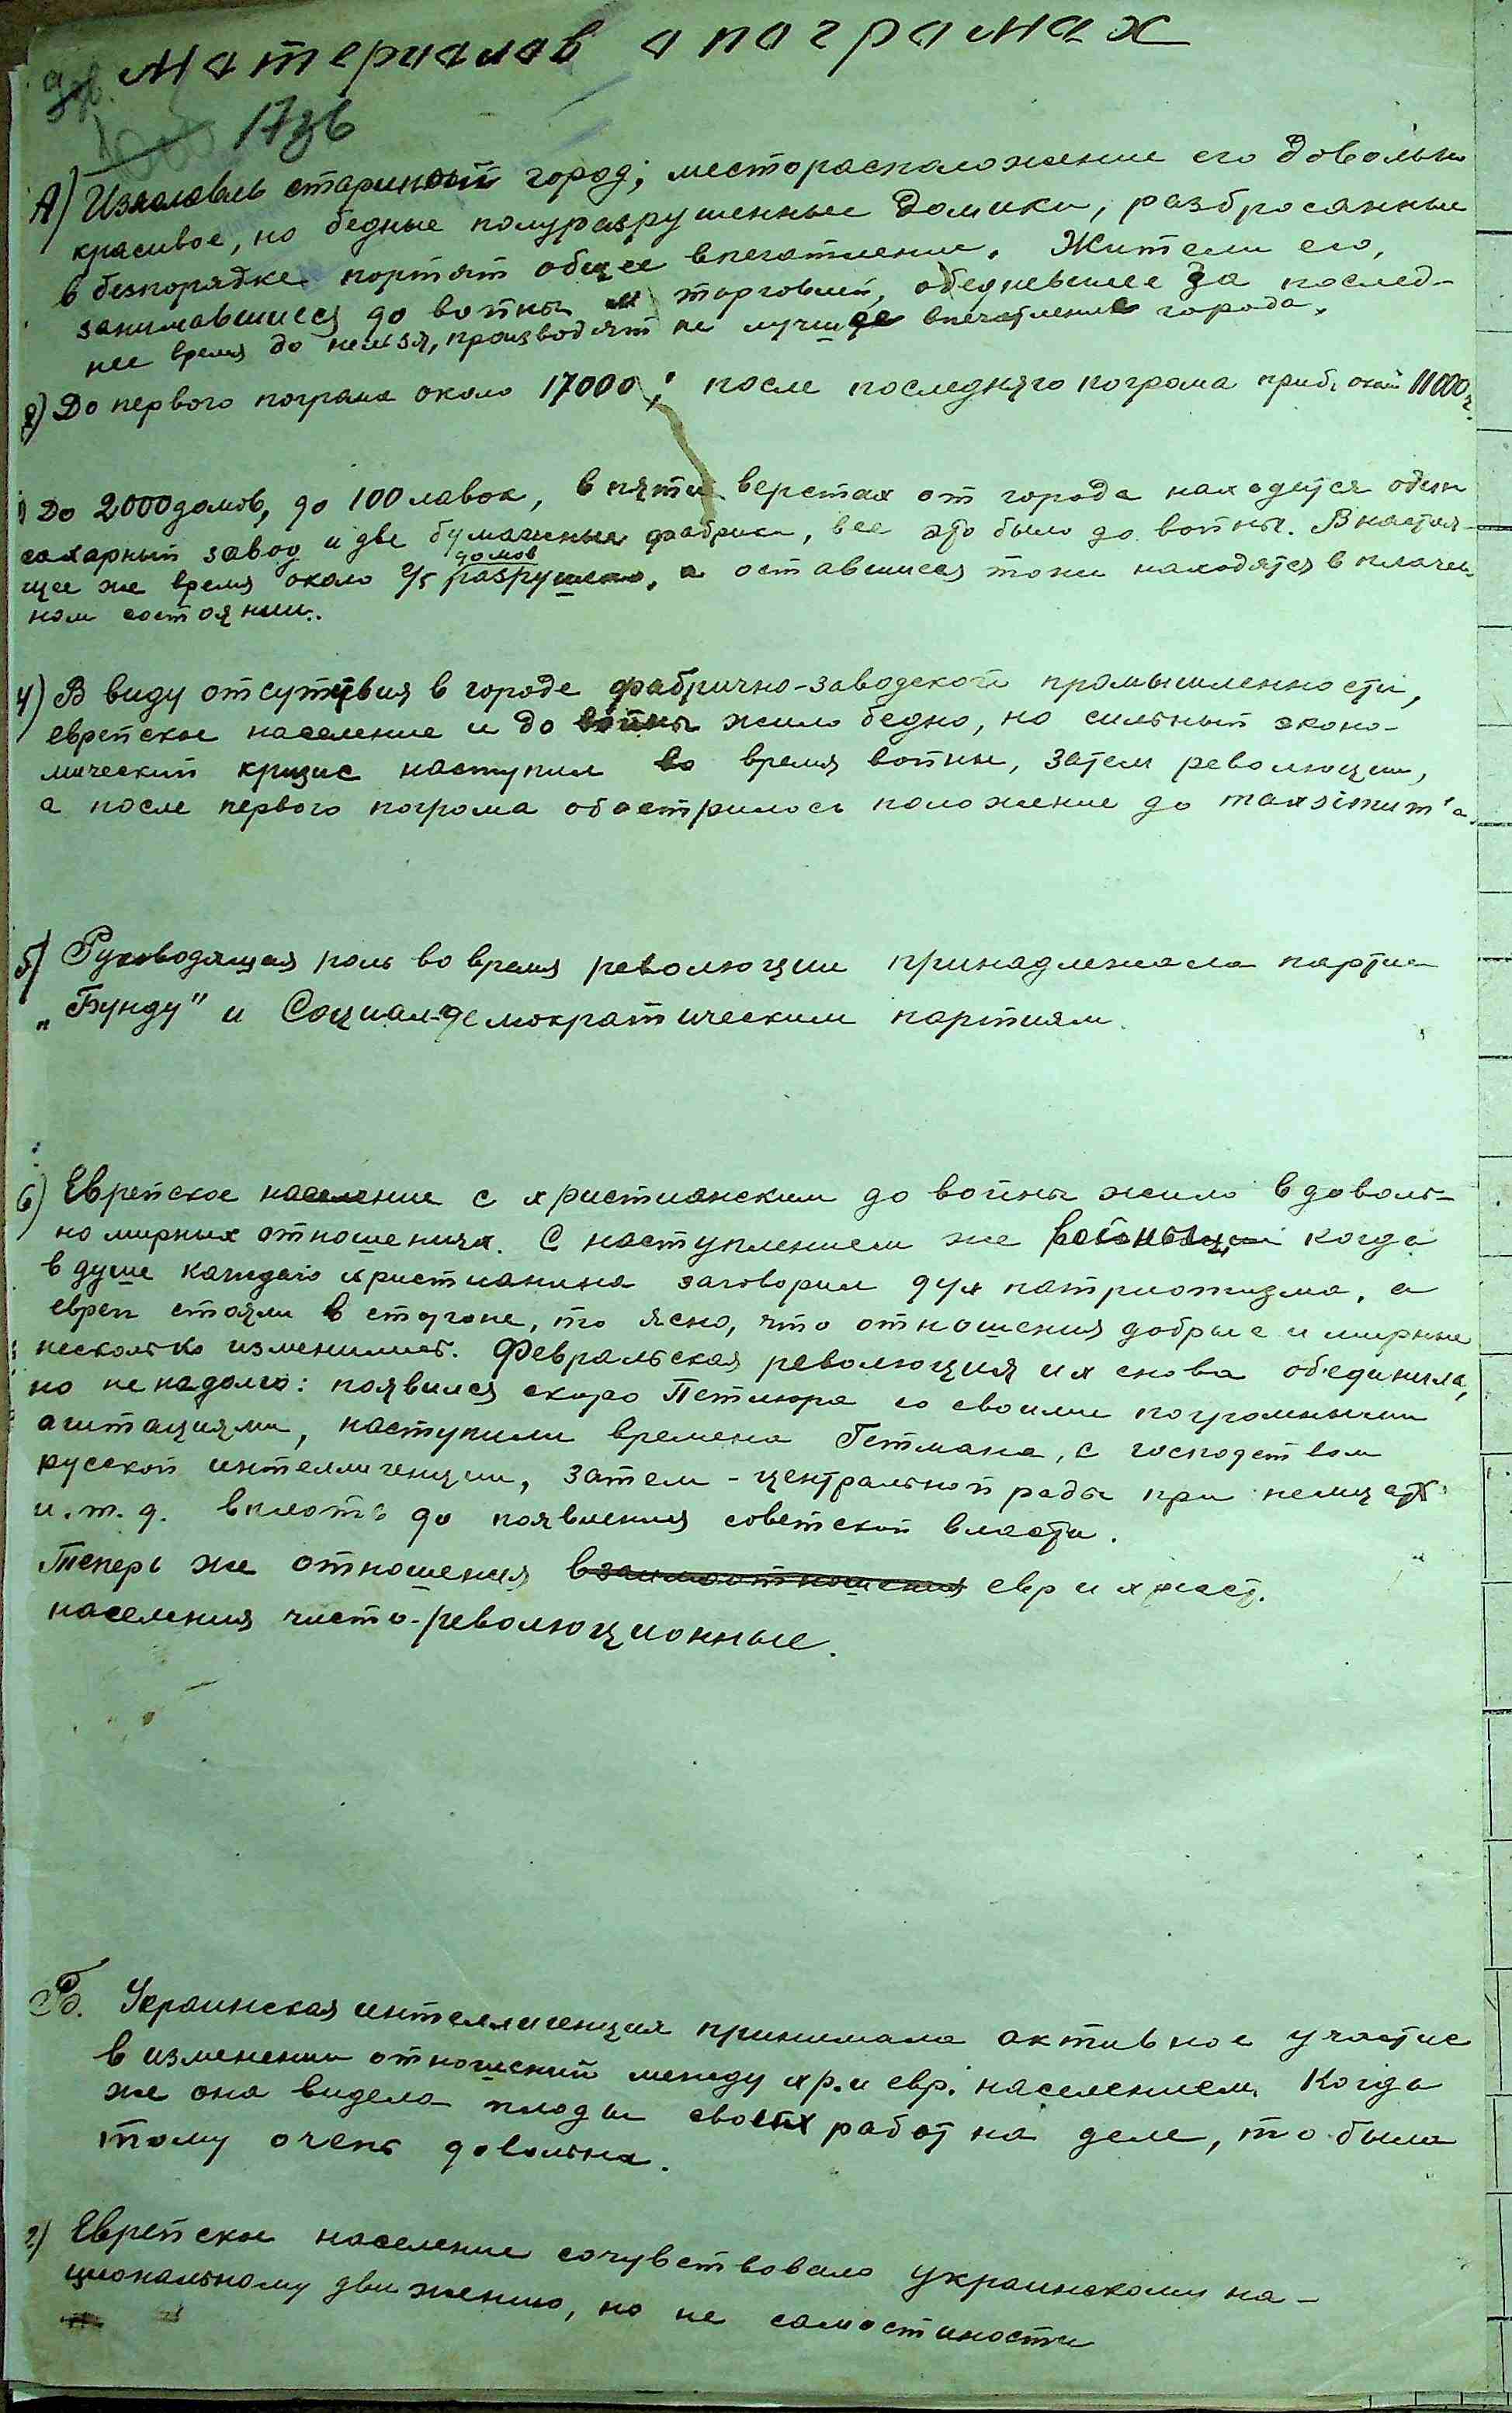 Материалов о пограмах
17зв
А) Изяславль старинный город; месторасположение его довольно
красивое, но бедные полуразрушенные домики, разбросанные
в безпорядке портят общее впечатление. Жители его,
занимавшиеся до войны торговлей, обедневшее за послед-
нее время до нельзя, производят не лучшее впечатление города.
2) До первого пограма около 17000; после последняго погрома приб. окол 11000 ч.
До 2000 домов, до 100 лавок, в пяти верстах от города находится один
сахарный завод и две бумажные фабрики, все это было до войны. В настоя-
щее же время около 2/5 домов разрушено, а оставшиеся тоже находятся в плачев-
ном состоянии.
4) В виду отсутствия в городе фабрично-заводской промышленности,
еврейское население и до войны жило бедно, но сильный эконо-
мический кризис наступил во время войны, затем революции,
а после первого погрома обострилось положение до maxsimum'а.
5) Руководящая роль во время революции принадлежала партии
„Бунду" и Социал-демократическим партиям.
6) Еврейское население с христианским до войны жило в доволь-
но мирных отношениях. С наступлением же войны, когда
в душе каждаго христианина заговорил дух патриотизма, а
евреи стояли в стороне, то ясно, что отношения добрые и мирные
несколько изменились. Февральская революция их снова обединила,
но не надолго: появился скоро Петлюра со своими погромными
агитациями, наступили времена Гетмана, с господством
русской интеллигенции, затем - центральной рады при немцах
и.т.д. вплоть до появления советской власти.
Теперь же отношения взаимоотношения евр и христ.
населения чисто-революционные.
Б. Украинская интеллигенция принимала активное участие
в изменении отношений между хр. и евр. населением. Когда
же она видела плоды своих работ на деле, то была
тому очень довольна.
2) Еврейское население сочувствовало украинскому на-
циональному движению, но не самостиности